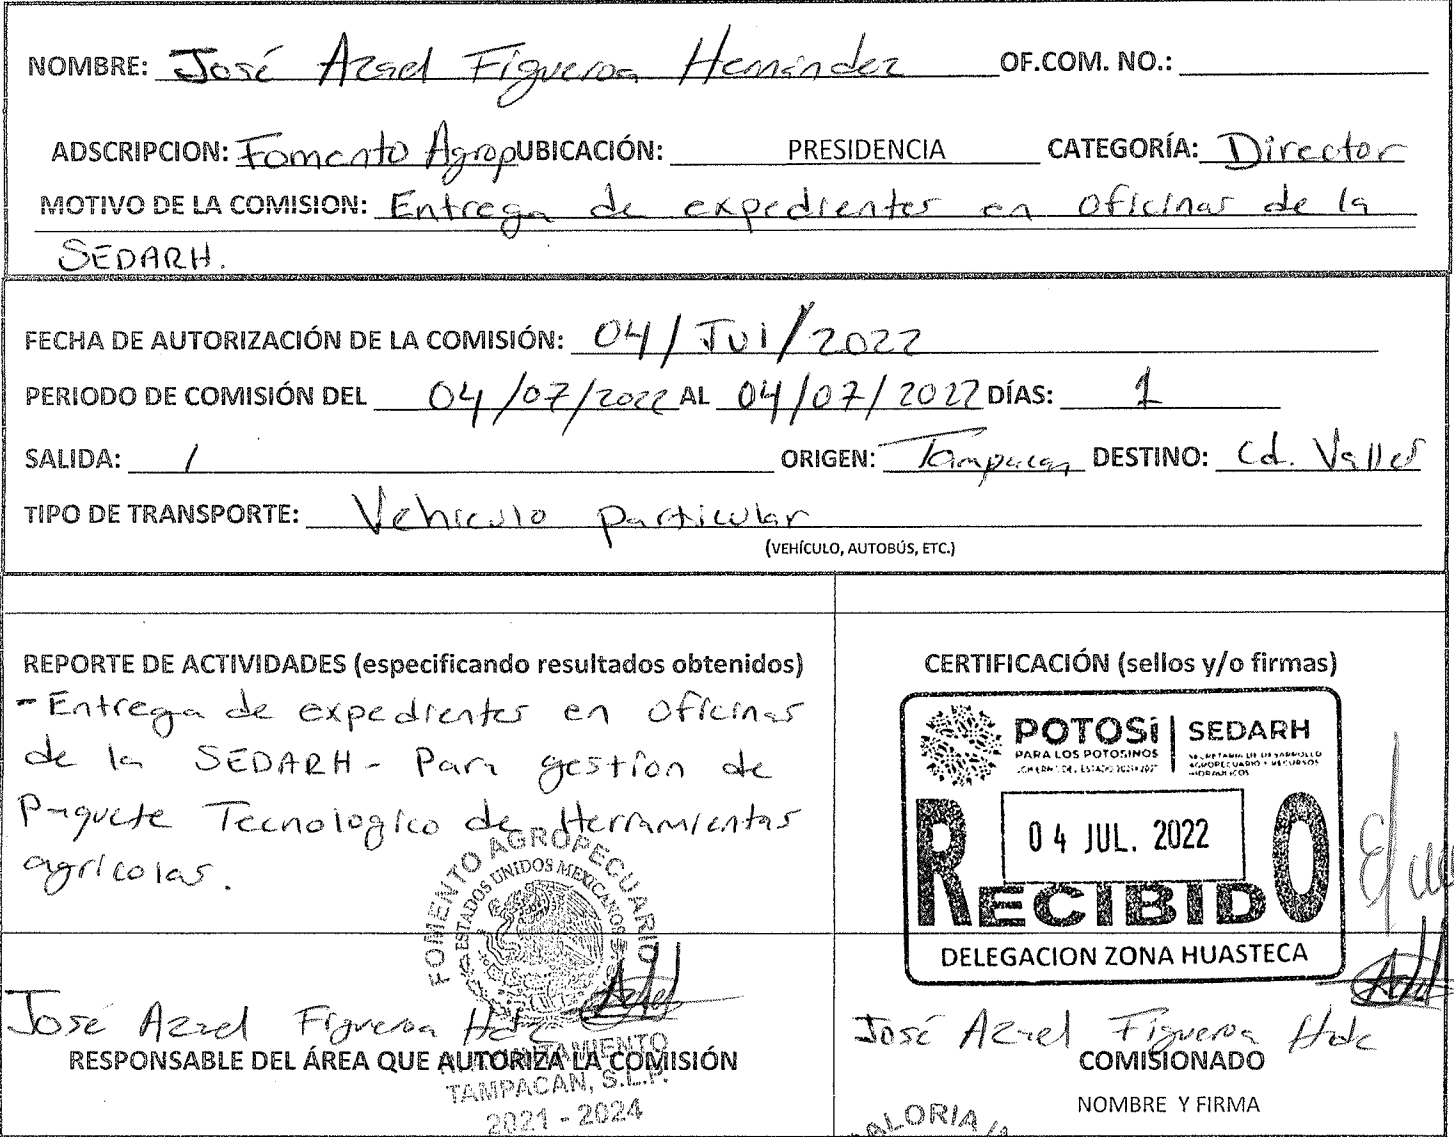 NOMBRE: José Azael Figueroa Hernández OF.COM. NO.:
ADSCRIPCION: Fomento Agrop UBICACIÓN: PRESIDENCIA CATEGORÍA: Director
MOTIVO DE LA COMISION: Entrega de expedientes en oficinas de la
SEDARH.
FECHA DE AUTORIZACIÓN DE LA COMISIÓN: 04/Jul/2022
PERIODO DE COMISIÓN DEL 04/07/2022 AL 04/07/2022 DÍAS: 1
SALIDA: / ORIGEN: Tampacan DESTINO: Cd. Valles
TIPO DE TRANSPORTE: Vehiculo particular
(VEHÍCULO, AUTOBÚS, ETC.)
REPORTE DE ACTIVIDADES (especificando resultados obtenidos)
- Entrega de expedientes en oficinas
de la SEDARH - Para gestion de
Paquete Tecnologico de Herramientas
agricolas.
FOMENTO AGROPECUARIO
ESTADOS UNIDOS MEXICANOS
José Azael Figueroa Hdz
RESPONSABLE DEL ÁREA QUE AUTORIZA LA COMISIÓN
AYUNTAMIENTO
TAMPACAN, S.L.P.
2021 - 2024
CERTIFICACIÓN (sellos y/o firmas)
POTOSÍ SEDARH
PARA LOS POTOSINOS
GOBIERNO DEL ESTADO 2021-2027
SECRETARÍA DE DESARROLLO
AGROPECUARIO Y RECURSOS
HIDRÁULICOS
04 JUL. 2022
RECIBIDO
DELEGACION ZONA HUASTECA
José Azael Figueroa Hdz
COMISIONADO
NOMBRE Y FIRMA